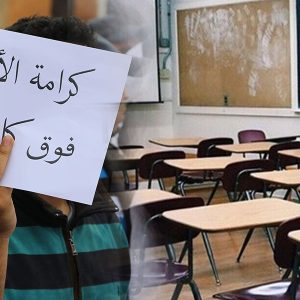 كرامة الأ
فوق ك